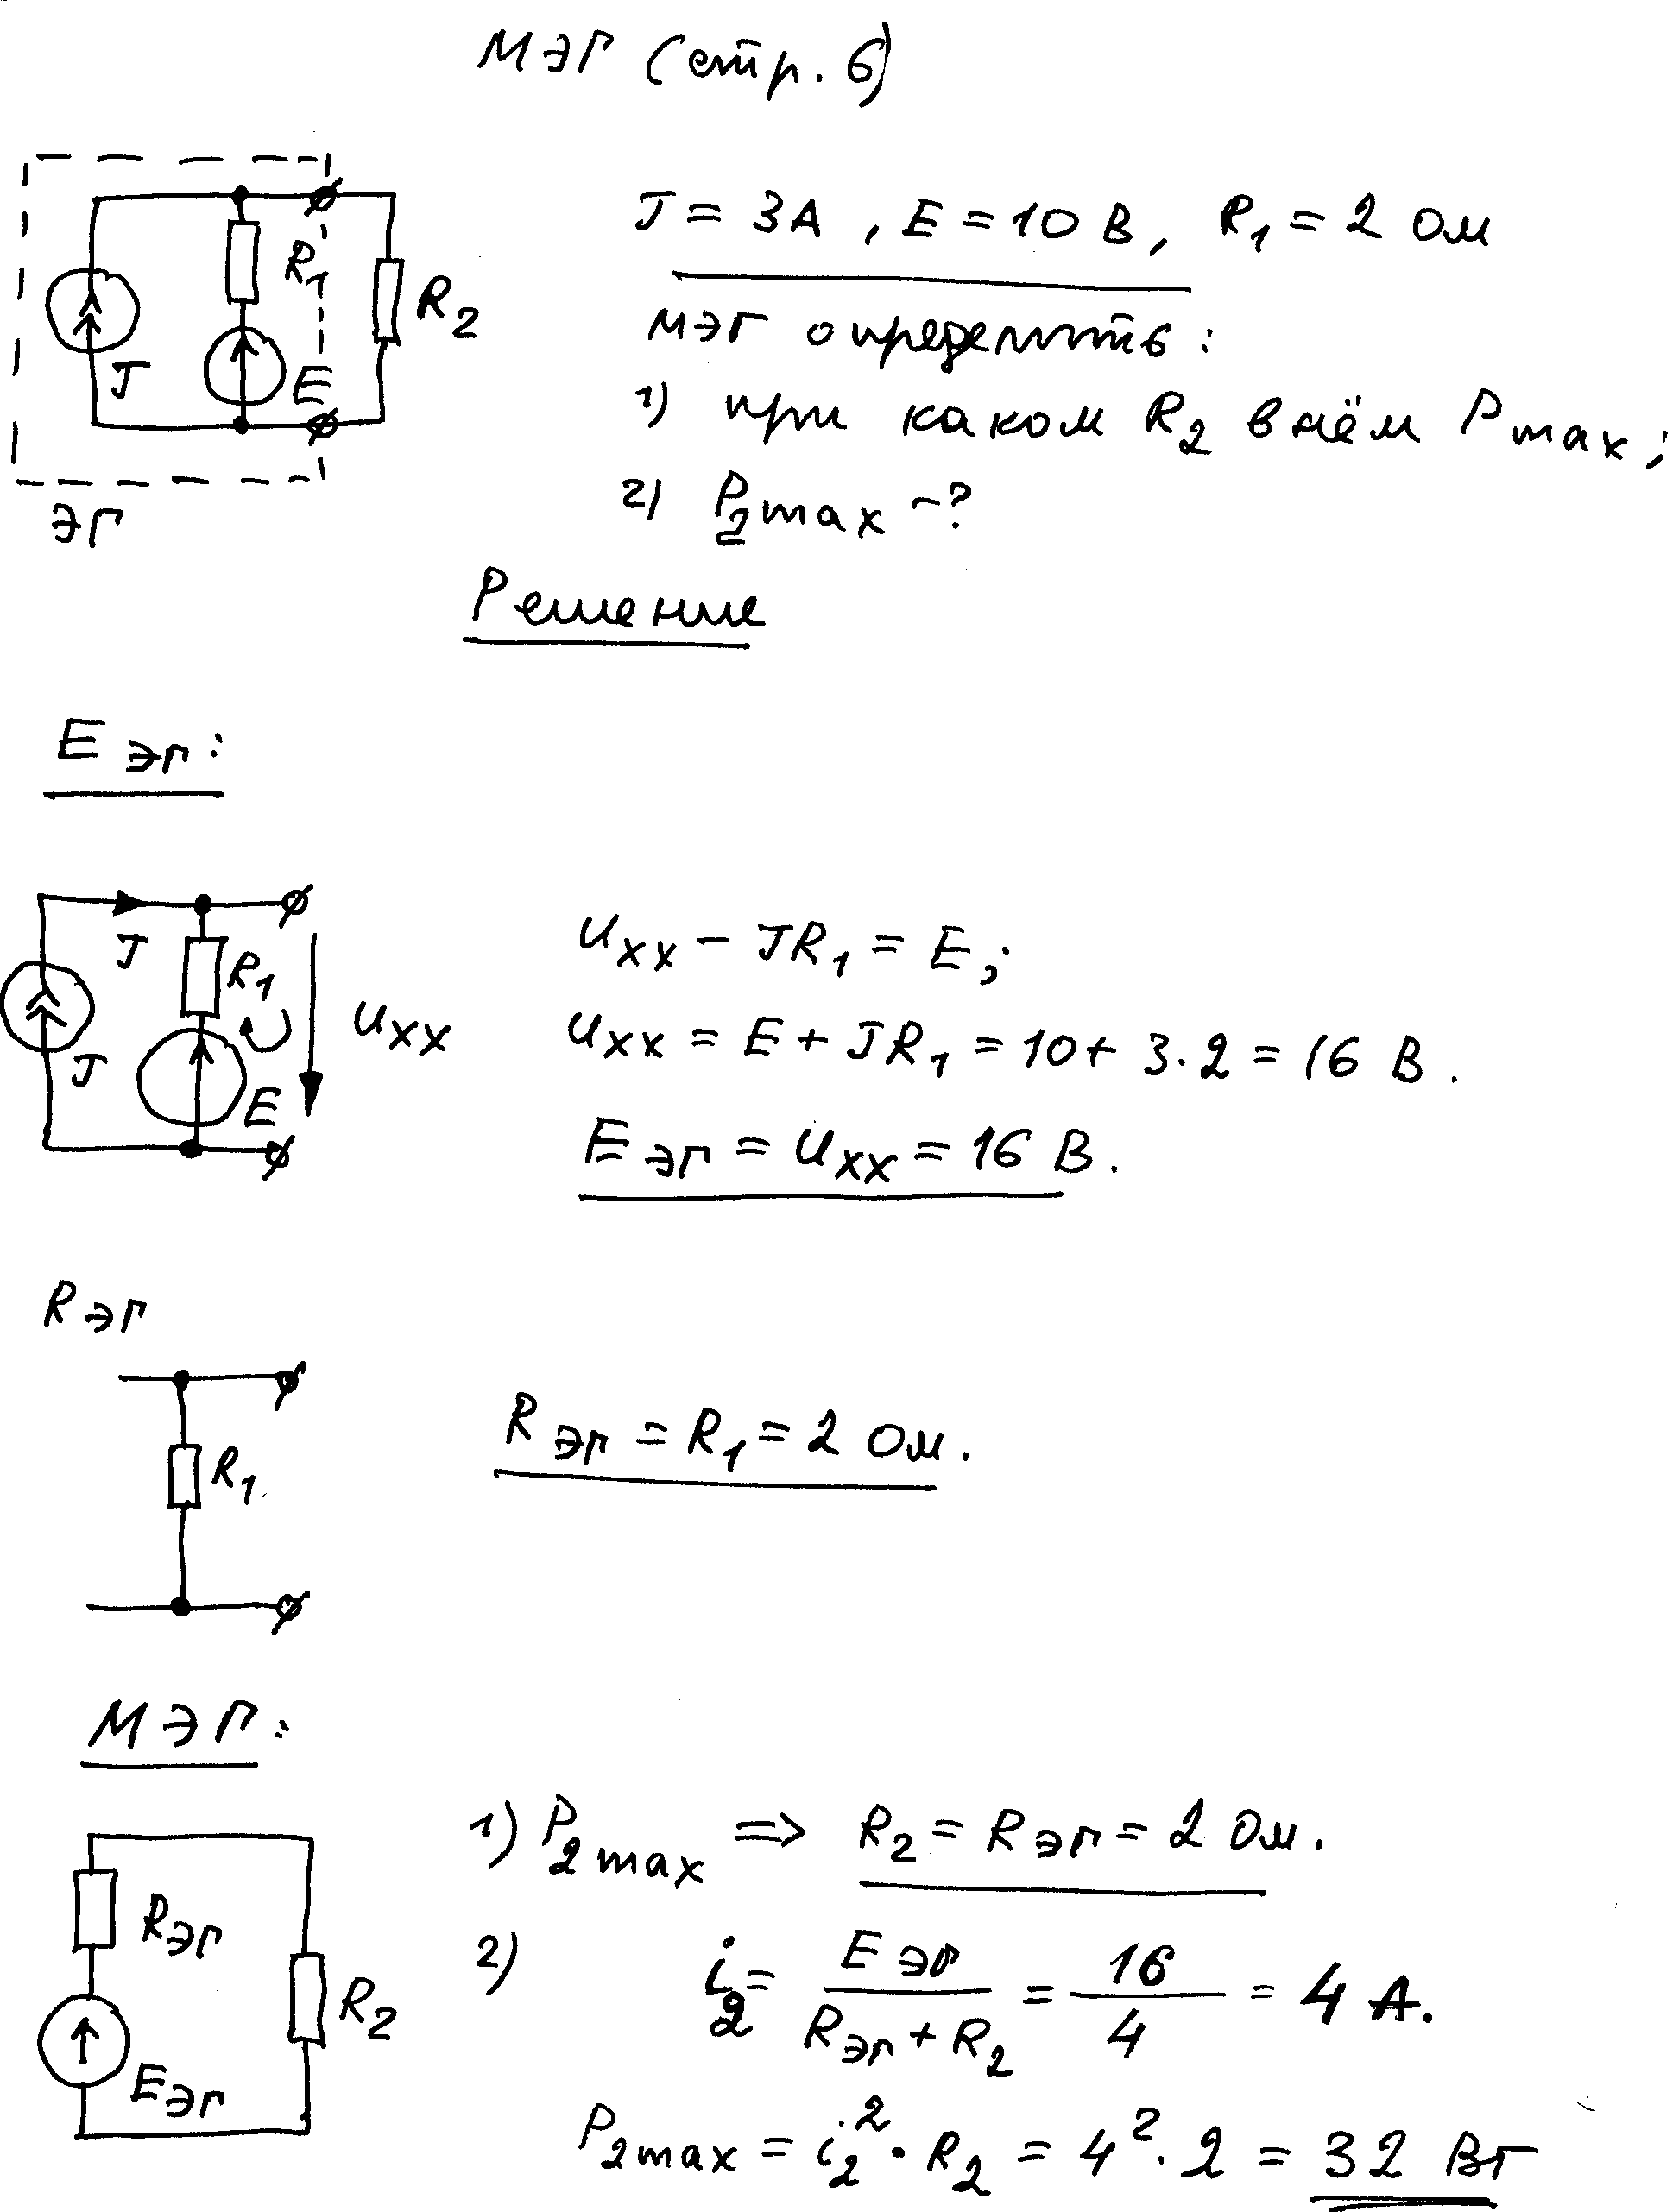 МЭГ (стр. 6)
J = 3А , E = 10 В, R₁ = 2 Ом
R₁
R₂
J
E
ЭГ
МЭГ определить:
1) при каком R₂ в нём Pmax;
2) P₂max -?
Решение
Eэг:
J
R₁
Uxx
J
E
Uxx - JR₁ = E;
Uxx = E + JR₁ = 10 + 3·2 = 16 В.
Eэг = Uxx = 16 В.
Rэг
R₁
Rэг = R₁ = 2 Ом.
МЭГ:
Rэг
R₂
Eэг
1) P₂max => R₂ = Rэг = 2 Ом.
2) i₂ = Eэг / (Rэг + R₂) = 16 / 4 = 4 А.
P₂max = i₂² · R₂ = 4² · 2 = 32 Вт